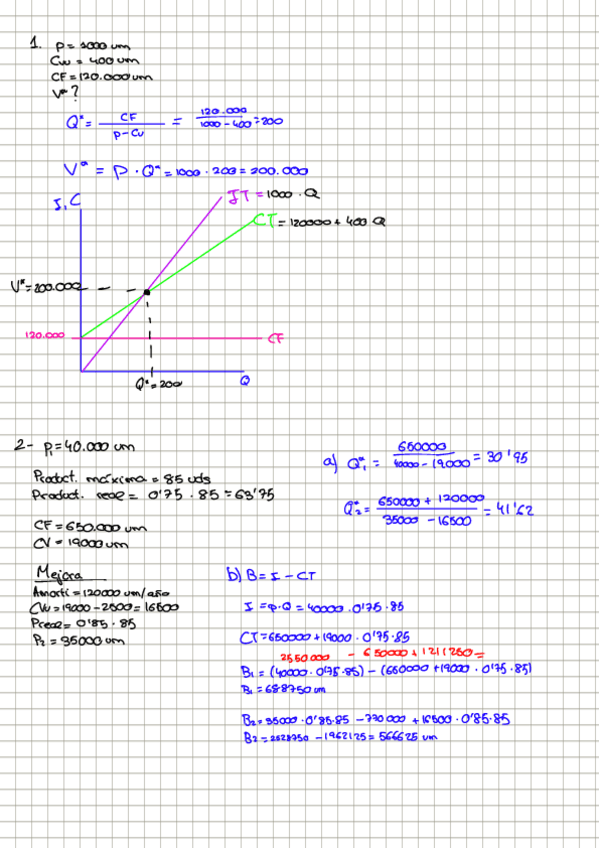 1. p = 1000 um
Cvu = 400 um
CF = 120.000 um
V* ?
Q* = CF / p - Cu = 120.000 / 1000 - 400 = 200
V* = P · Q* = 1000 · 200 = 200.000
I, C
IT = 1000 · Q
CT = 120000 + 400 Q
V* = 200.000
120.000
CF
Q* = 200
Q
2- P₁ = 40.000 um
Product. máxima = 85 uds
Product. real = 0'75 · 85 = 63'75
CF = 650.000 um
CV = 19000 um
Mejora
Amorti = 120000 um/año
CVu = 19000 - 2500 = 16500
Preal = 0'85 · 85
P₂ = 35000 um
a) Q₁* = 650000 / 40000 - 19.000 = 30'95
Q₂* = 650000 + 120000 / 35000 - 16500 = 41'62
b) B = I - CT
I = p · Q = 40000 · 0'75 · 85
CT = 650000 + 19000 · 0'75 · 85
2550000 - 650000 + 1211250 =
B₁ = (40000 · 0'75 · 85) - (650000 + 19000 · 0'75 · 85)
B₁ = 688750 um
B₂ = 35000 · 0'85 · 85 - 770000 + 16500 · 0'85 · 85
B₂ = 2528750 - 1962125 = 566625 um